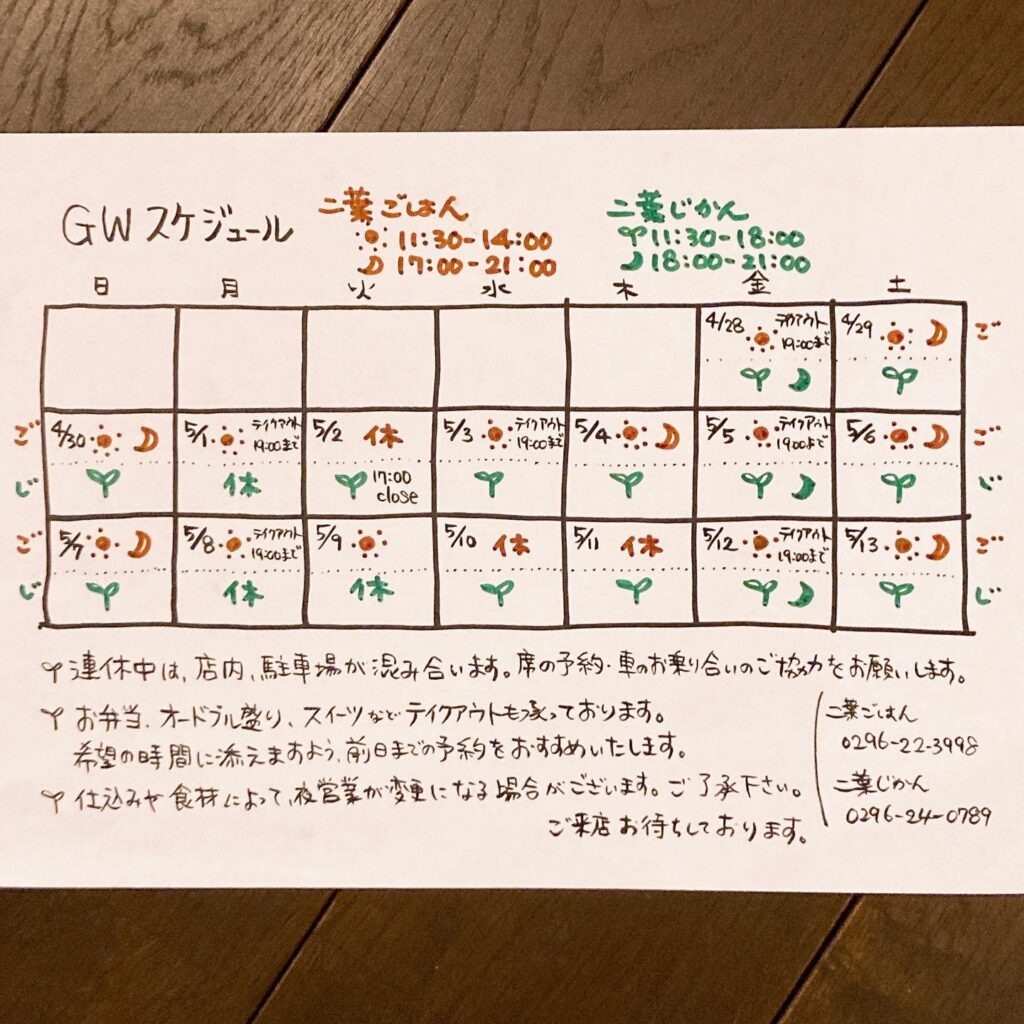 GW スケジュール
二葉ごはん
11:30-14:00
17:00-21:00
二葉じかん
11:30-18:00
18:00-21:00
日 月 火 水 木 金 土
4/28 テイクアウト 19:00まで
4/29
ご
ご
4/30
5/1 テイクアウト 19:00まで
5/2 休
5/3 テイクアウト 19:00まで
5/4
5/5 テイクアウト 19:00まで
5/6
ご
じ
休
17:00 close
じ
ご
5/7
5/8 テイクアウト 19:00まで
5/9
5/10 休
5/11 休
5/12 テイクアウト 19:00まで
5/13
ご
じ
休
休
じ
連休中は、店内、駐車場が混み合います。席の予約・車のお乗り合いのご協力をお願いします。
お弁当、オードブル盛り、スイーツなどテイクアウトも承っております。
希望の時間に添えますよう、前日までの予約をおすすめいたします。
仕込みや食材によって、夜営業が変更になる場合がございます。ご了承下さい。
ご来店お待ちしております。
二葉ごはん
0296-22-3998
二葉じかん
0296-24-0789